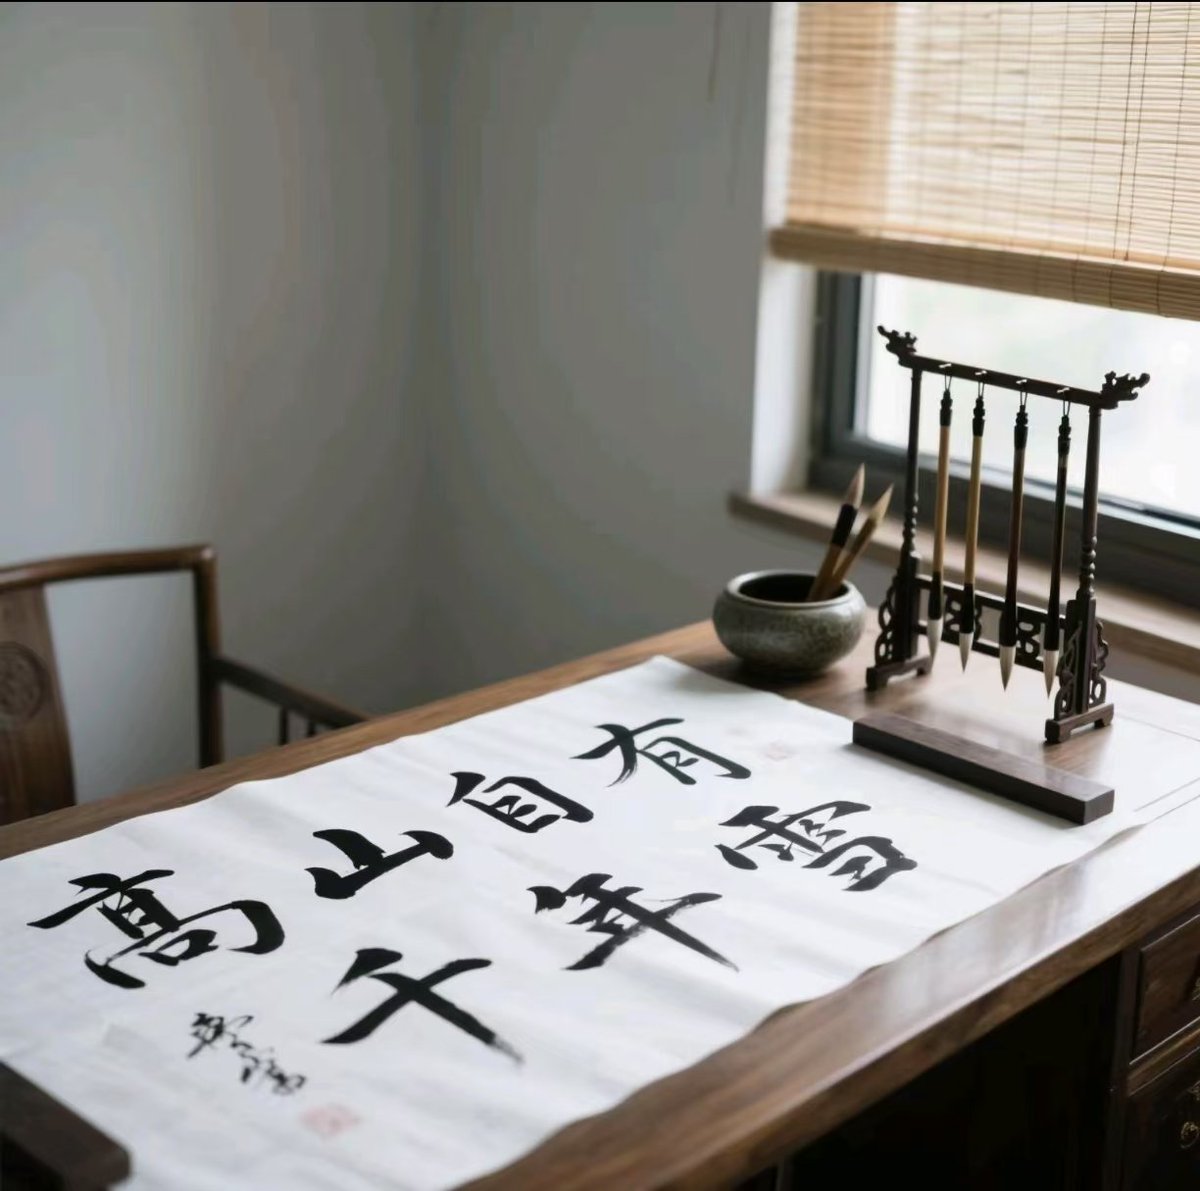 高山自有
千年雪